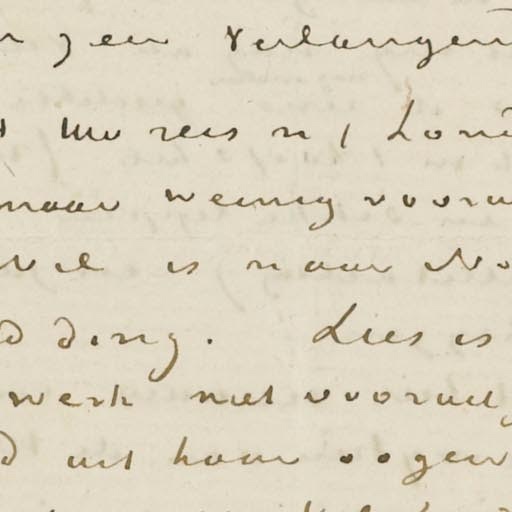 zen verlangen
Uw reis n/ Lond
maar weinig vooru
Wil is naar No
d ding. Lies is
werk niet vooruit
d uit haar oogen